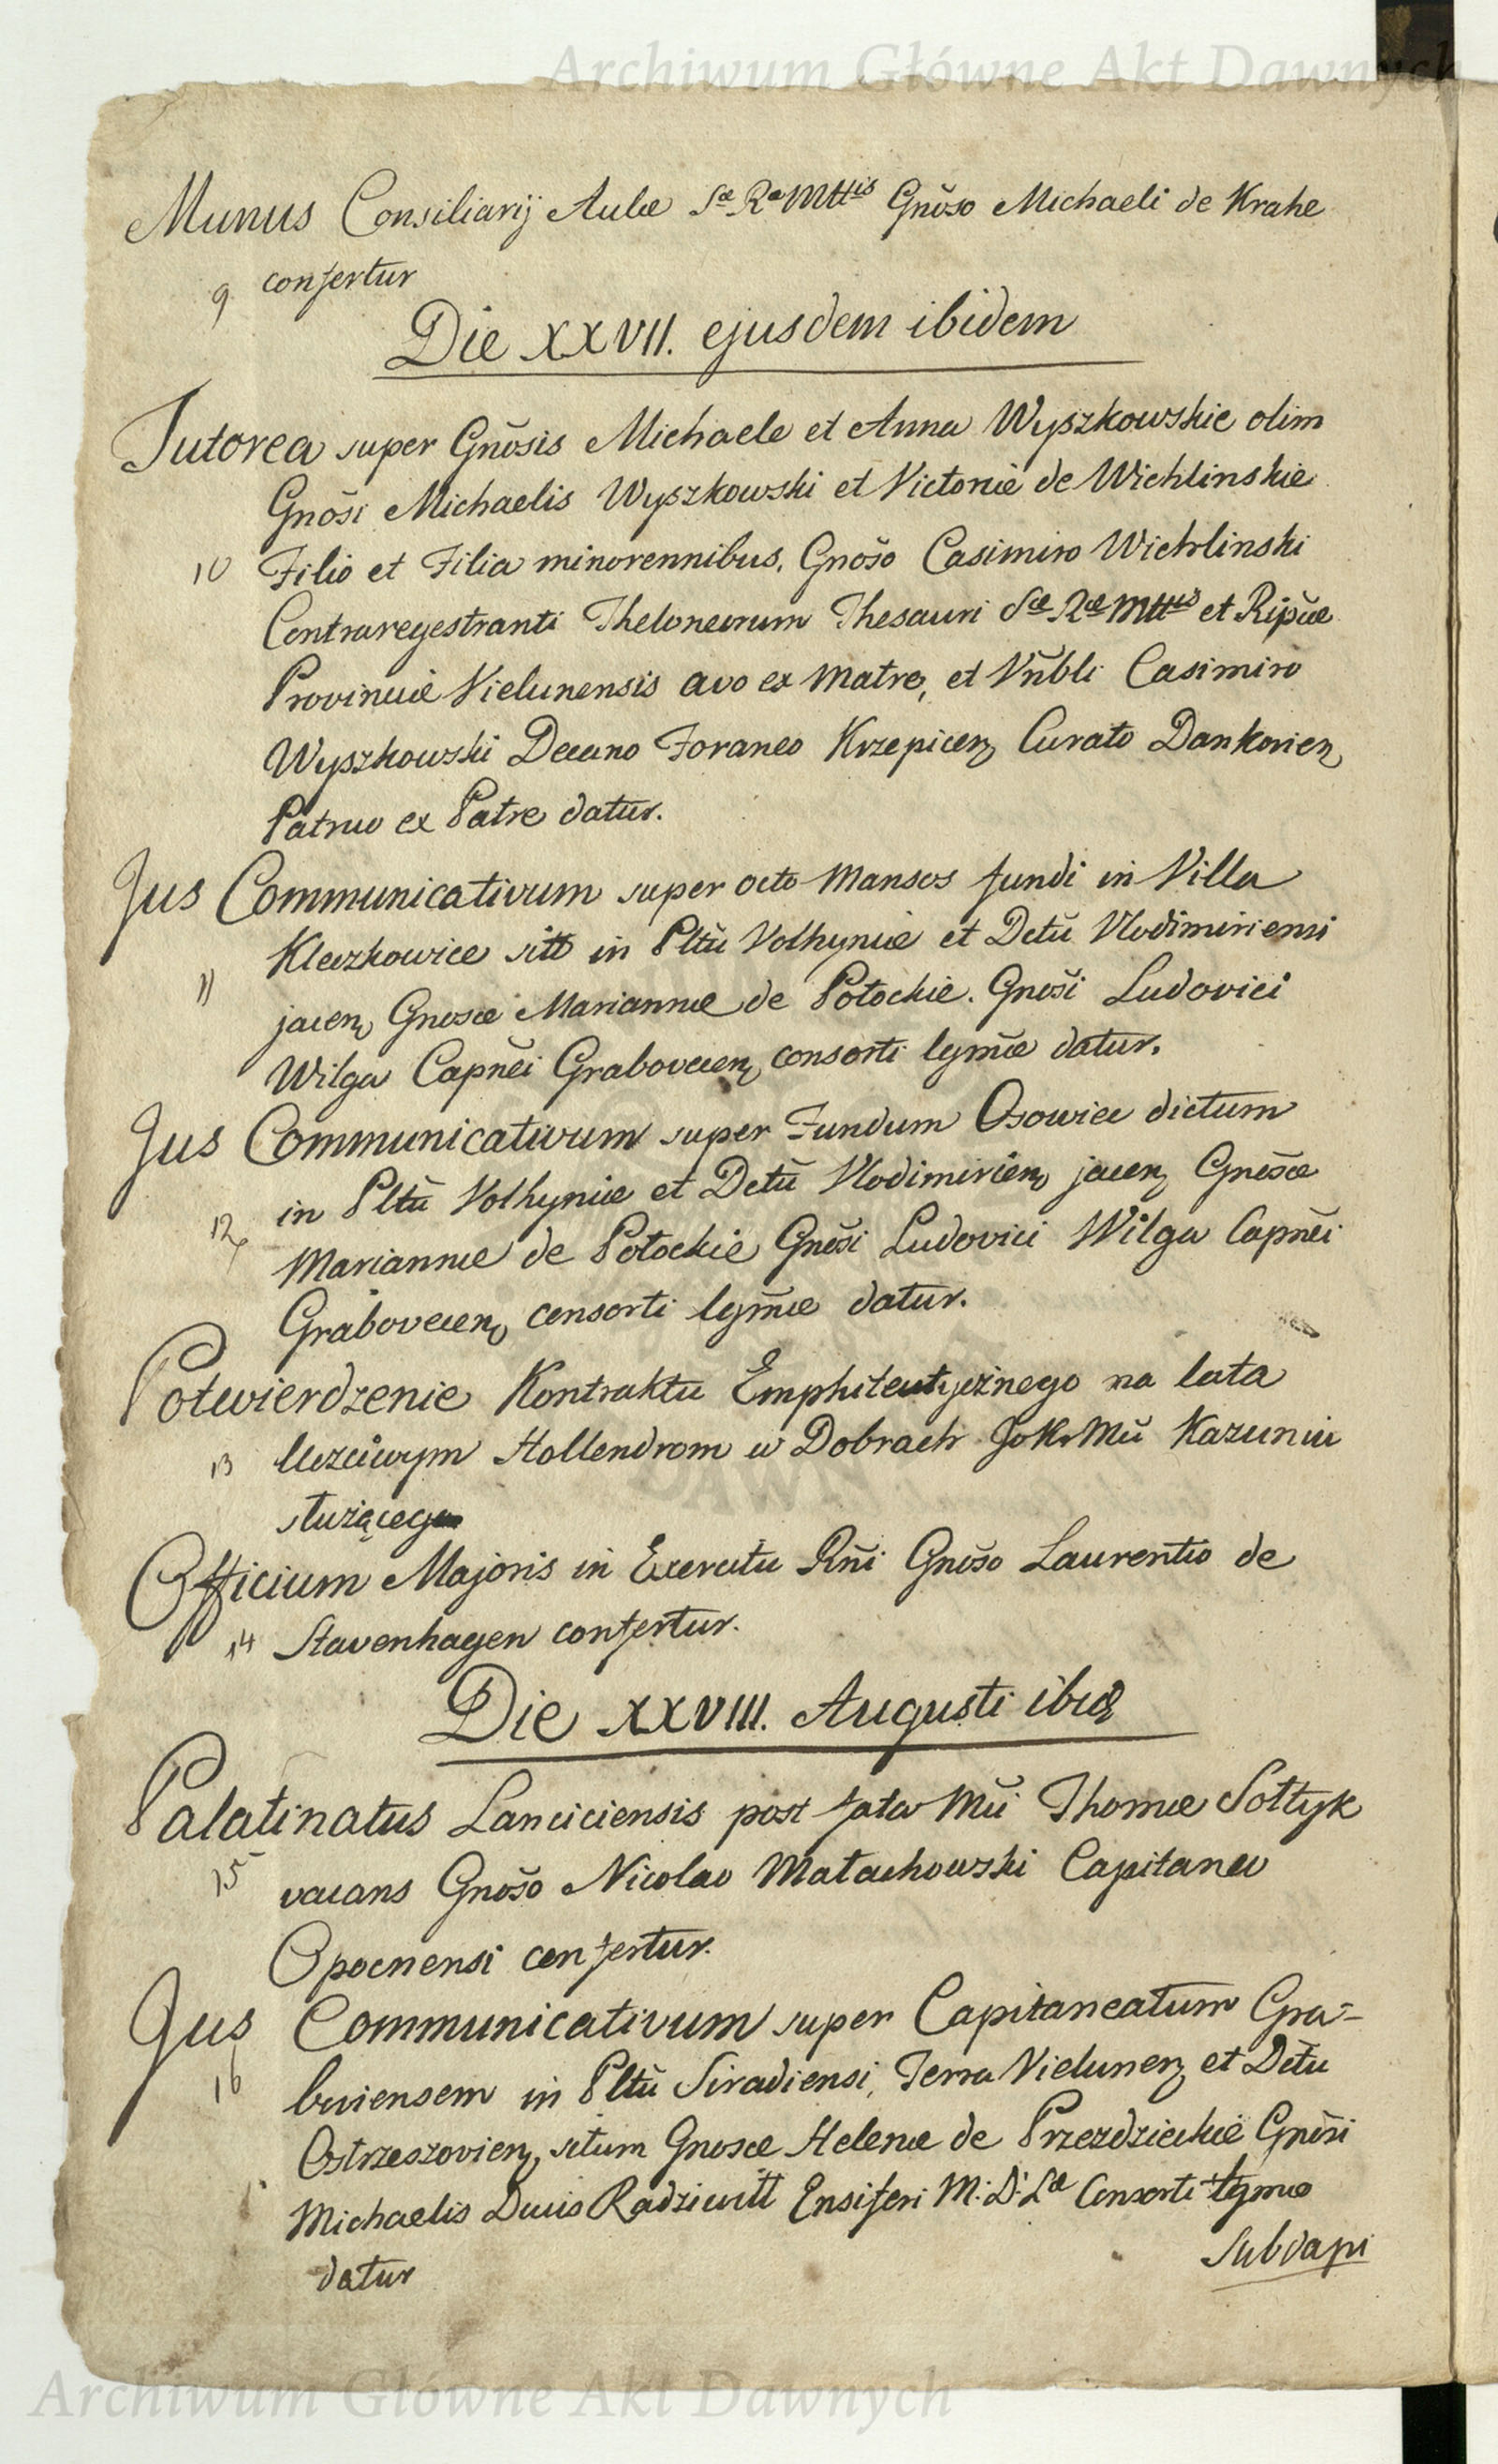 Archiwum Główne Akt Dawnych
Munus Consiliarij Aulæ Sæ Ræ Mttis Gnõso Michaeli de Krahe
9 confertur
Die XXVII. ejusdem ibidem
Tutorea super Gnõsis Michaele et Anna Wyszkowskie olim
Gnõsi Michaelis Wyszkowski et Victoriæ de Wichlinskie
10 Filio et Filia minorennibus, Gnõso Casimiro Wichlinski
Contraregestranti Theloneorum Thesauri Sæ Ræ Mttis et Ripũæ
Provinciæ Vielunensis avo ex Matre, et Vñbli Casimiro
Wyszkowski Decano Foraneo Krzepicen, Curato Dankovien,
Patruo ex Patre datur.
Jus Communicativum super octo Mansos fundi in Villa
Kleczkowice sitt in Pltũ Volhyniæ et Dctũ Vlodimiriensi
11 jacen, Gnosæ Mariannæ de Potockie. Gnõsi Ludovici
Wilga Capnẽi Grabovecen, consorti lgmæ datur.
Jus Communicativum super Fundum Osowice dictum
12 in Pltũ Volhyniæ et Dctũ Vlodimirien, jacen, Gnõsæ
Mariannæ de Potockie Gnõsi Ludovici Wilga Capnẽi
Grabovecen, consorti lgmæ datur.
Potwierdzenie Kontraktu Emphiteutycznego na lata
13 Uczciwym Hollendrom w Dobrach JoKrMũ Kazuniu
służącego
Officium Majoris in Exercitu Rñi Gnõso Laurentio de
14 Stavenhagen confertur.
Die XXVIII. Augusti ibid
Palatinatus Lanciciensis post fata Mũ Thomæ Sołtyk
15 vacans Gnõso Nicolao Małachowski Capitaneo
Opocnensi confertur.
Jus Communicativum super Capitaneatum Gra=
16 boviensem in Pltũ Siradiensi, Terra Vielunen, et Dctũ
Ostrzeszovien, situm Gnosæ Helenæ de Przezdzieckie Gnõsi
Michaelis Ducis Radziwiłł Ensiferi M. D. Læ Consorti lgmæ
datur
Subdapi
Archiwum Główne Akt Dawnych